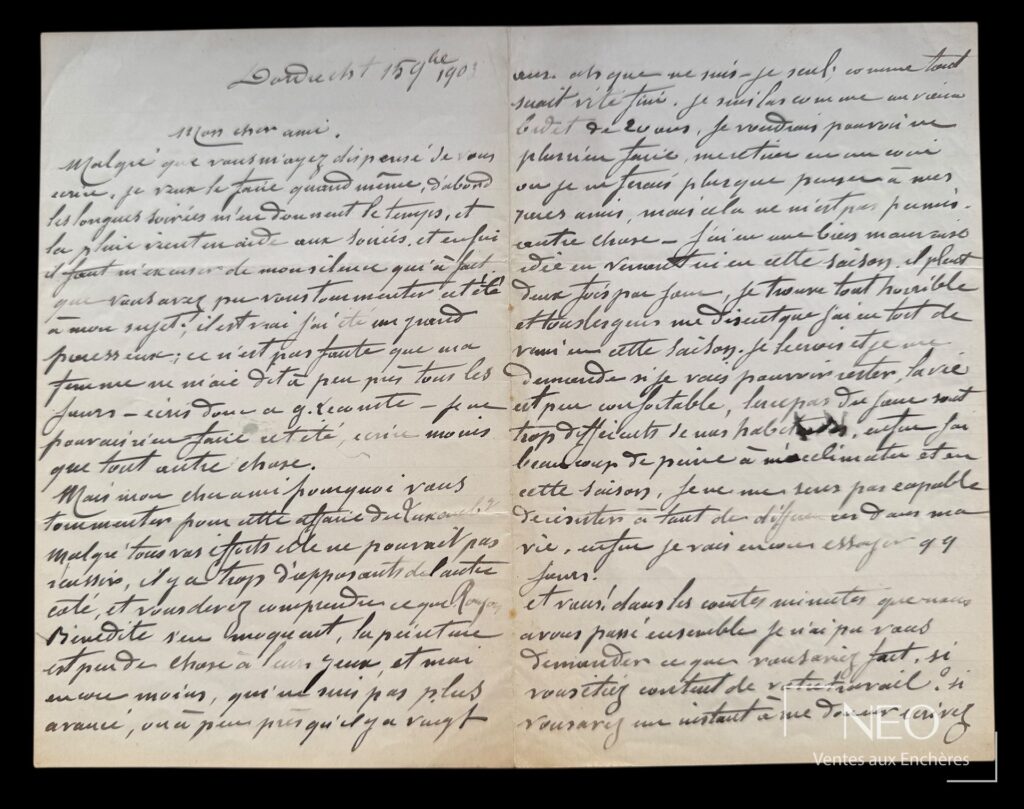 Dordrecht 15 9bre 190
Mon cher ami.
Malgré que vous m'ayez dispensé de vous
ecrire, je veux le faire quand même, d'abord
les longues soirées m'en donnent le temps, et
la pluie vient en aide aux soirées, et enfin
il faut m'excuser de mon silence qui à fait
que vous avez pu vous tourmenter cet été
à mon sujet; il est vrai j'ai été un grand
paresseux; ce n'est pas faute que ma
femme ne m'aie dit à peu près tous les
jours – ecris donc a G. Lecomte – je ne
pouvais rien faire cet été, ecrire moins
que tout autre chose.
Mais mon cher ami pourquoi vous
tourmenter pour cette affaire du
malgré tous vos efforts elle ne pouvait pas
reussir, il y a trop d'opposants de l'autre
coté, et vous devez comprendre ce que Roujon
Bénédite s'en moquent, la peinture
est peu de chose à leurs yeux, et moi
encore moins, qui ne suis pas plus
avancé, ou à peu près qu'il y a vingt
ans. ah que ne suis-je seul; comme tout
serait vite fini. je suis las comme un vieux
bidet de 20 ans, je voudrais pouvoir ne
plus rien faire, me retirer en un coin
ou je ne ferais plus que penser à mes
rares amis, mais cela ne m'est pas permis.
autre chose – j'ai eu une bien mauvaise
idée en venant ici en cette saison. il pleut
deux fois par jour, je trouve tout horrible
et tous les gens me disent que j'ai eu tort de
venir en cette saison. je le crois et je me
demande si je vais pouvoir rester, la vie
est peu confortable, les repas du jour sont
trop difficiles de nos habitudes, enfin j'ai
beaucoup de peine à m'acclimater et en
cette saison, je ne me sens pas capable
de résister à tant de différences dans ma
vie, enfin je vais encore essayer qq
jours.
et vous! dans les courtes minutes que nous
avons passé ensemble je n'ai pu vous
demander ce que vous aviez fait, si
vous étiez content de votre travail? si
vous avez un instant à me donner ecrivez
NEO
Ventes aux Enchères